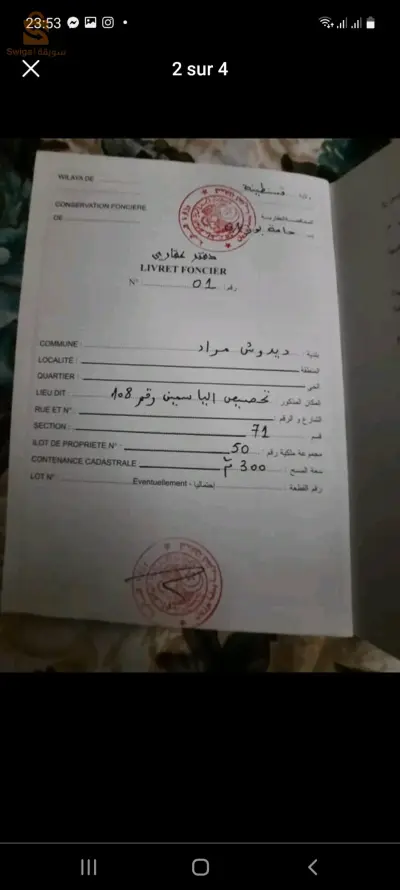 23:53
سويقة
Swiga
2 sur 4
WILAYA DE
ولاية قسنطينة
CONSERVATION FONCIERE
المحافظة العقارية
DE
حامة بوزيان
دفتر عقاري
LIVRET FONCIER
N° 01 رقم
COMMUNE : ديدوش مراد بلدية :
LOCALITÉ : المنطقة
QUARTIER : الحي
LIEU DIT تحصيص الياسمين رقم 108 المكان المذكور
RUE ET N° : الشارع و الرقم
SECTION : 71 قسم
ILOT DE PROPRIETE N° : 50 مجموعة ملكية رقم :
CONTENANCE CADASTRALE 300 م² سعة المسح :
LOT N° Eventuellement - إحتماليا رقم القطعة :